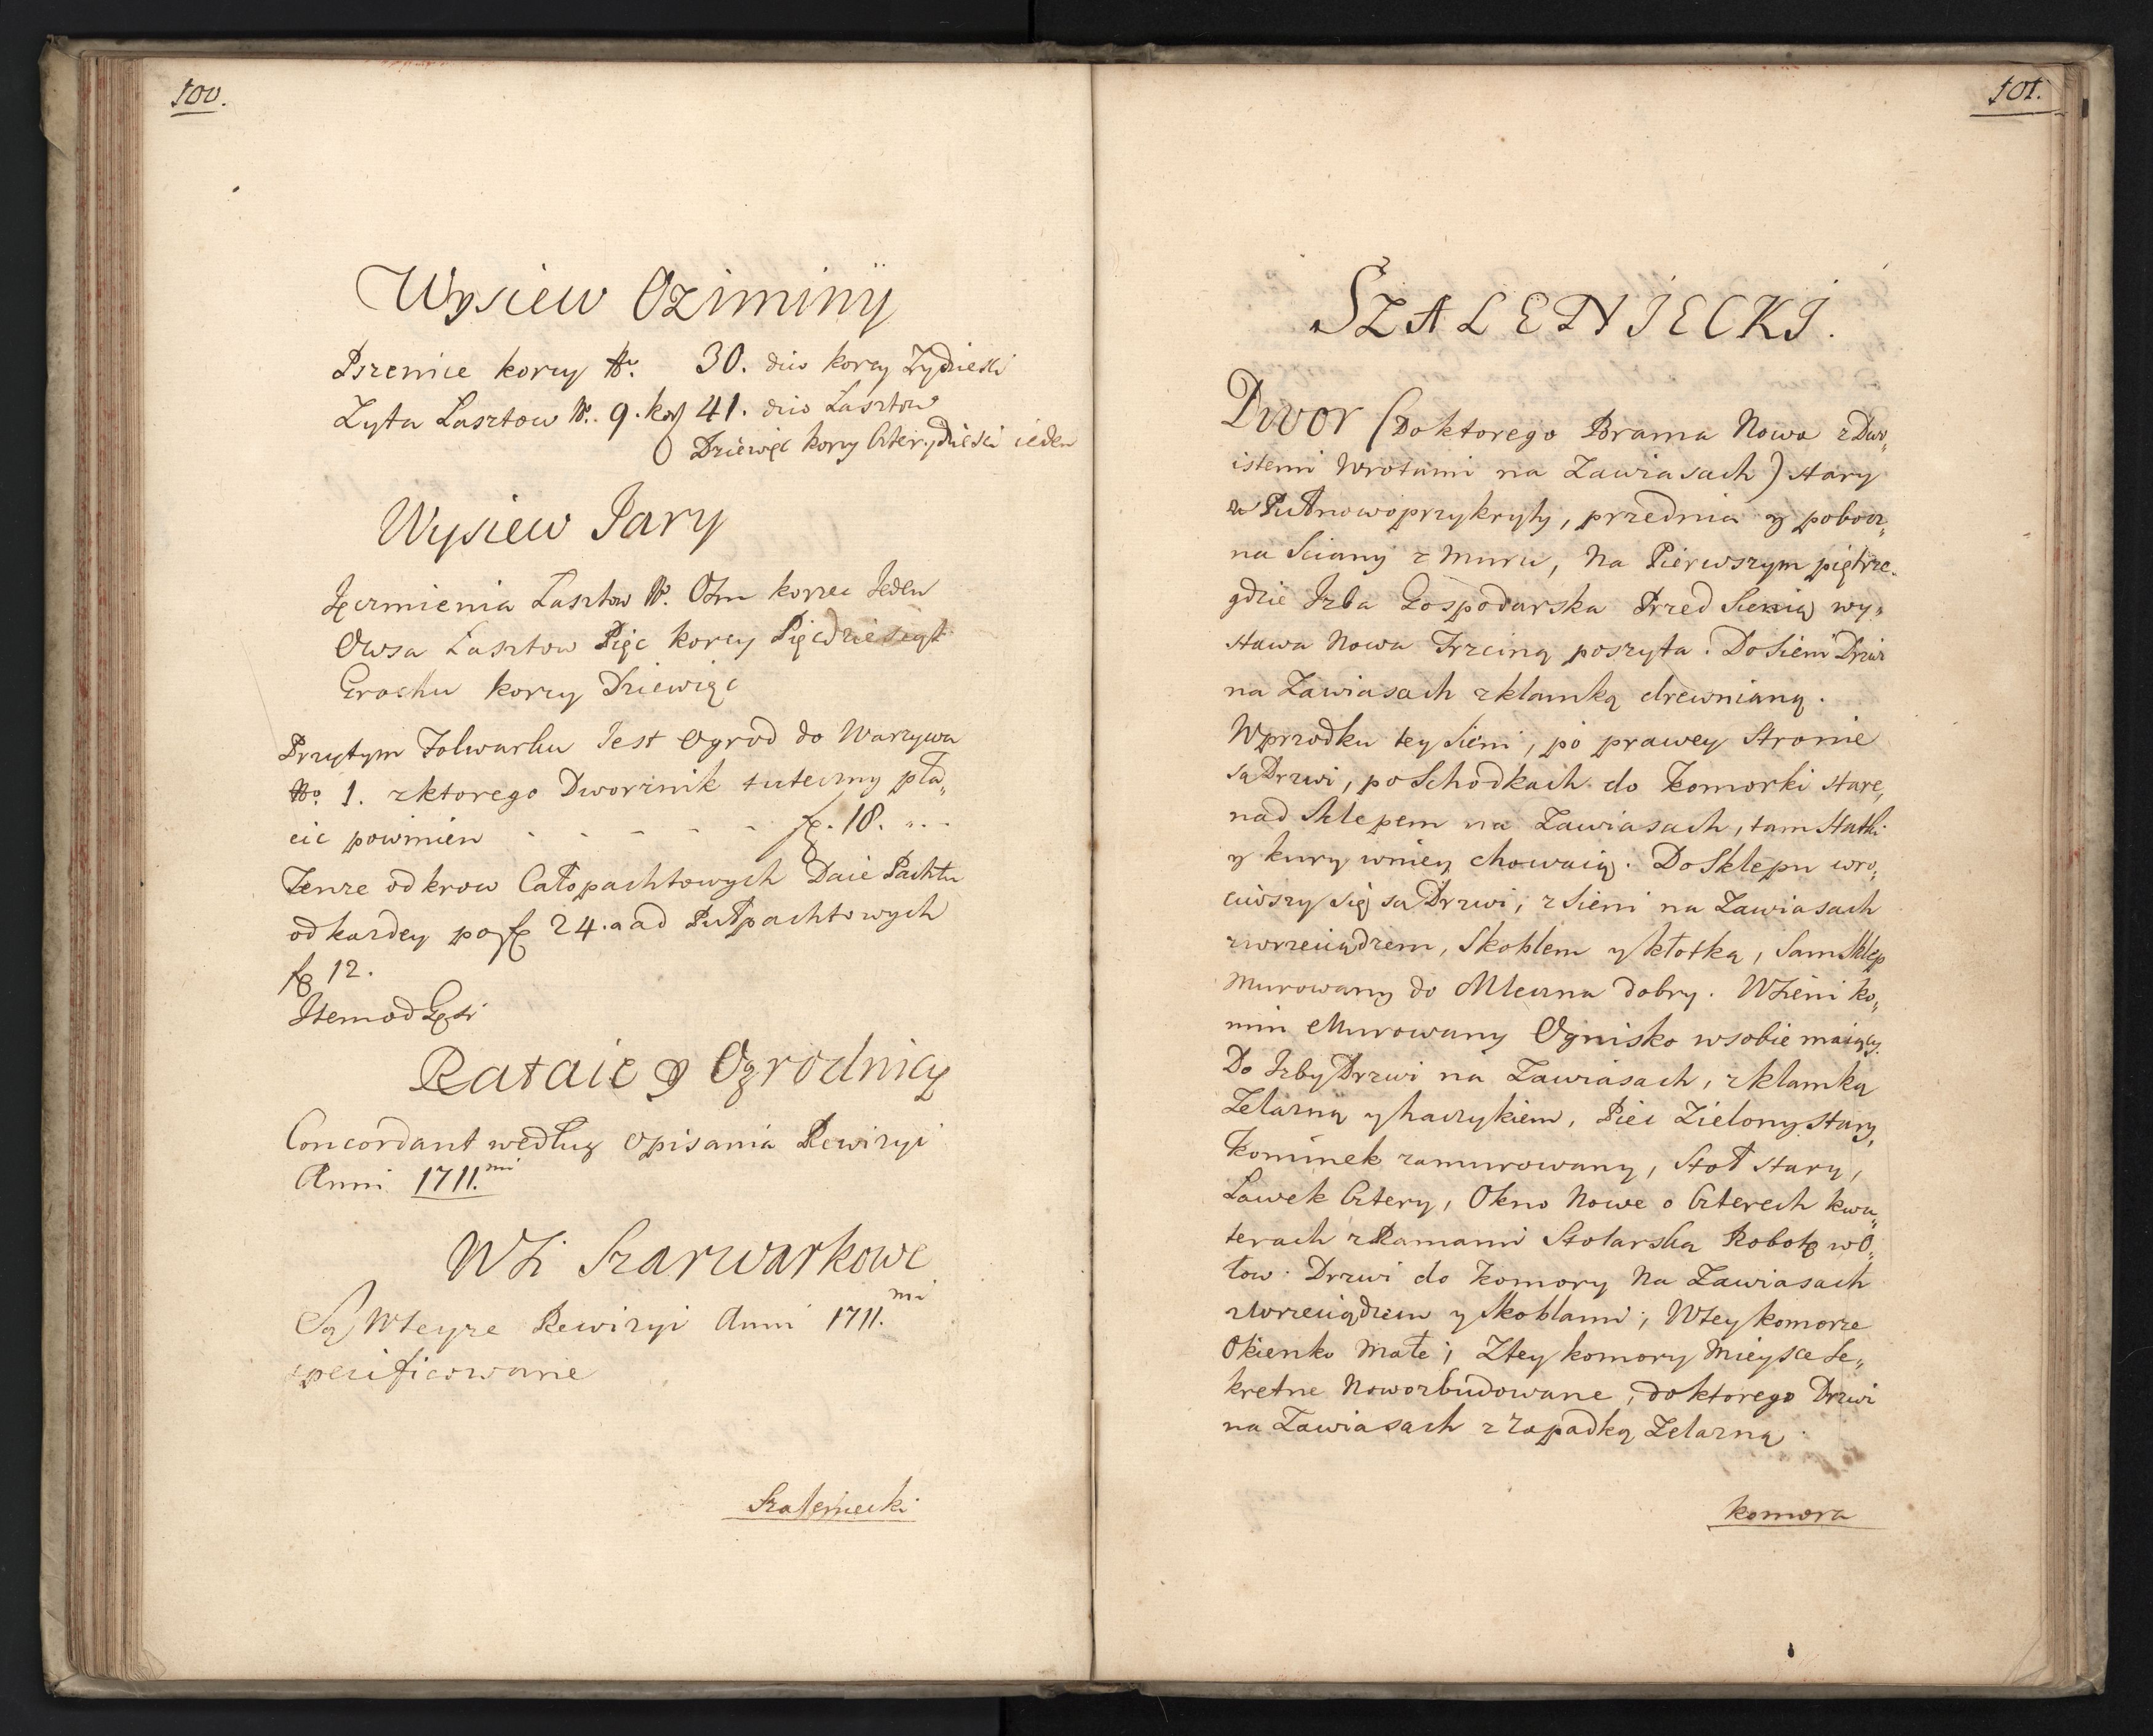 100.
Wysiew Oziminÿ
Pszenice korcy No. 30. dico korcy Trzydziesci
Zyta Lasztow No. 9. kor 41. dico Lasztow
Dziewięc korcy Czterydziesci ieden
Wysiew Jary
Jęczmienia Lasztow No. Osm korzec Jeden
Owsa Lasztow Pięc korcy Pięcdziesiąt
Grochu korcy Dziewięc
Przytym Folwarku Jest Ogrod do Warzywa
No. 1. zktorego Dworznik tuteczny pła„
cic powinien - - - - - fl. 18. „. -
Tenze od krow Całopachtowych Daie Pachtu
od kazdey po fl 24. a od Pułpachtowych
fl 12.
Item od Gęsi
Rataie y Ogrodnicy
Concordant według Opisania Rewizyi
Anni 1711.mi
Wsi Szarwarkowe
Są Wteyze Rewizyi Anni 1711.mi
specificowane
Szaleniecki
101.
SZALENIECKI.
Dwor (Doktorego Brama Nowa zDwo„
istemi Wrotami na Zawiasach) stary
w Pułnowoprzykryty, przednia y pobocz„
na Sciany z Muru, Na Pierwszym piętrze.
gdzie Izba Gospodarska Przed Sienią wy„
stawa Nowa Trzciną poszyta. Do Sieni Drzwi
na Zawiasach zklamką drewnianą.
Wprzodku tey Sieni, po prawey Stronie
są Drzwi, po Schodkach do Komorki stare,
nad Sklepem na Zawiasach, tam Statki
y kury wniey chowaią. Do Sklepu wro„
ciwszy się są Drzwi, z Sieni na Zawiasach
zwrzeciądzem, Skoblem y kłotką, Sam Sklep
Murowany do Mleczna dobry. WSieni ko„
min Murowany Ognisko wsobie maiący
Do Izby Drzwi na Zawiasach, zklamką
Zelazną y haczykiem, Piec Zielony Stary,
Kominek zamurowany, Stoł stary,
Lawek Cztery, Okno Nowe o Czterech kwa„
terach zRamami Stolarską Robotę wO„
łow. Drzwi do Komory Na Zawiasach
zWrzeciądzem y Skoblami; Wtey komorze
Okienko Małe; Ztey komory Mieysce Se„
kretne Nowozbudowane, doktorego Drzwi
na Zawiasach z Zapadką Zelazną
komora